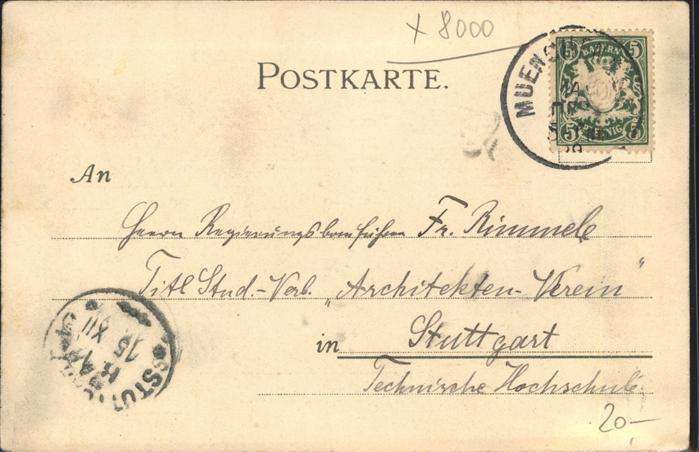 x 8000
POSTKARTE.
MUENCH
BAYERN
5 5
5 PFENNIG 5
An
Herrn Regierungsbauführer Fr. Rimmele
Titl Stud.-Verb. „Architekten-Verein"
in Stuttgart
Technische Hochschule.
STUT
15 XII
20-